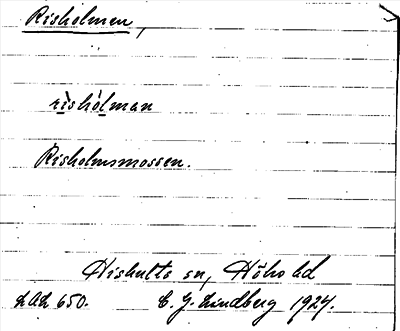 Risholmen,
rishólman
Risholmsmossen.
Hishults sn, Höks hd
LAL 650. C. J. Lindberg 1924.